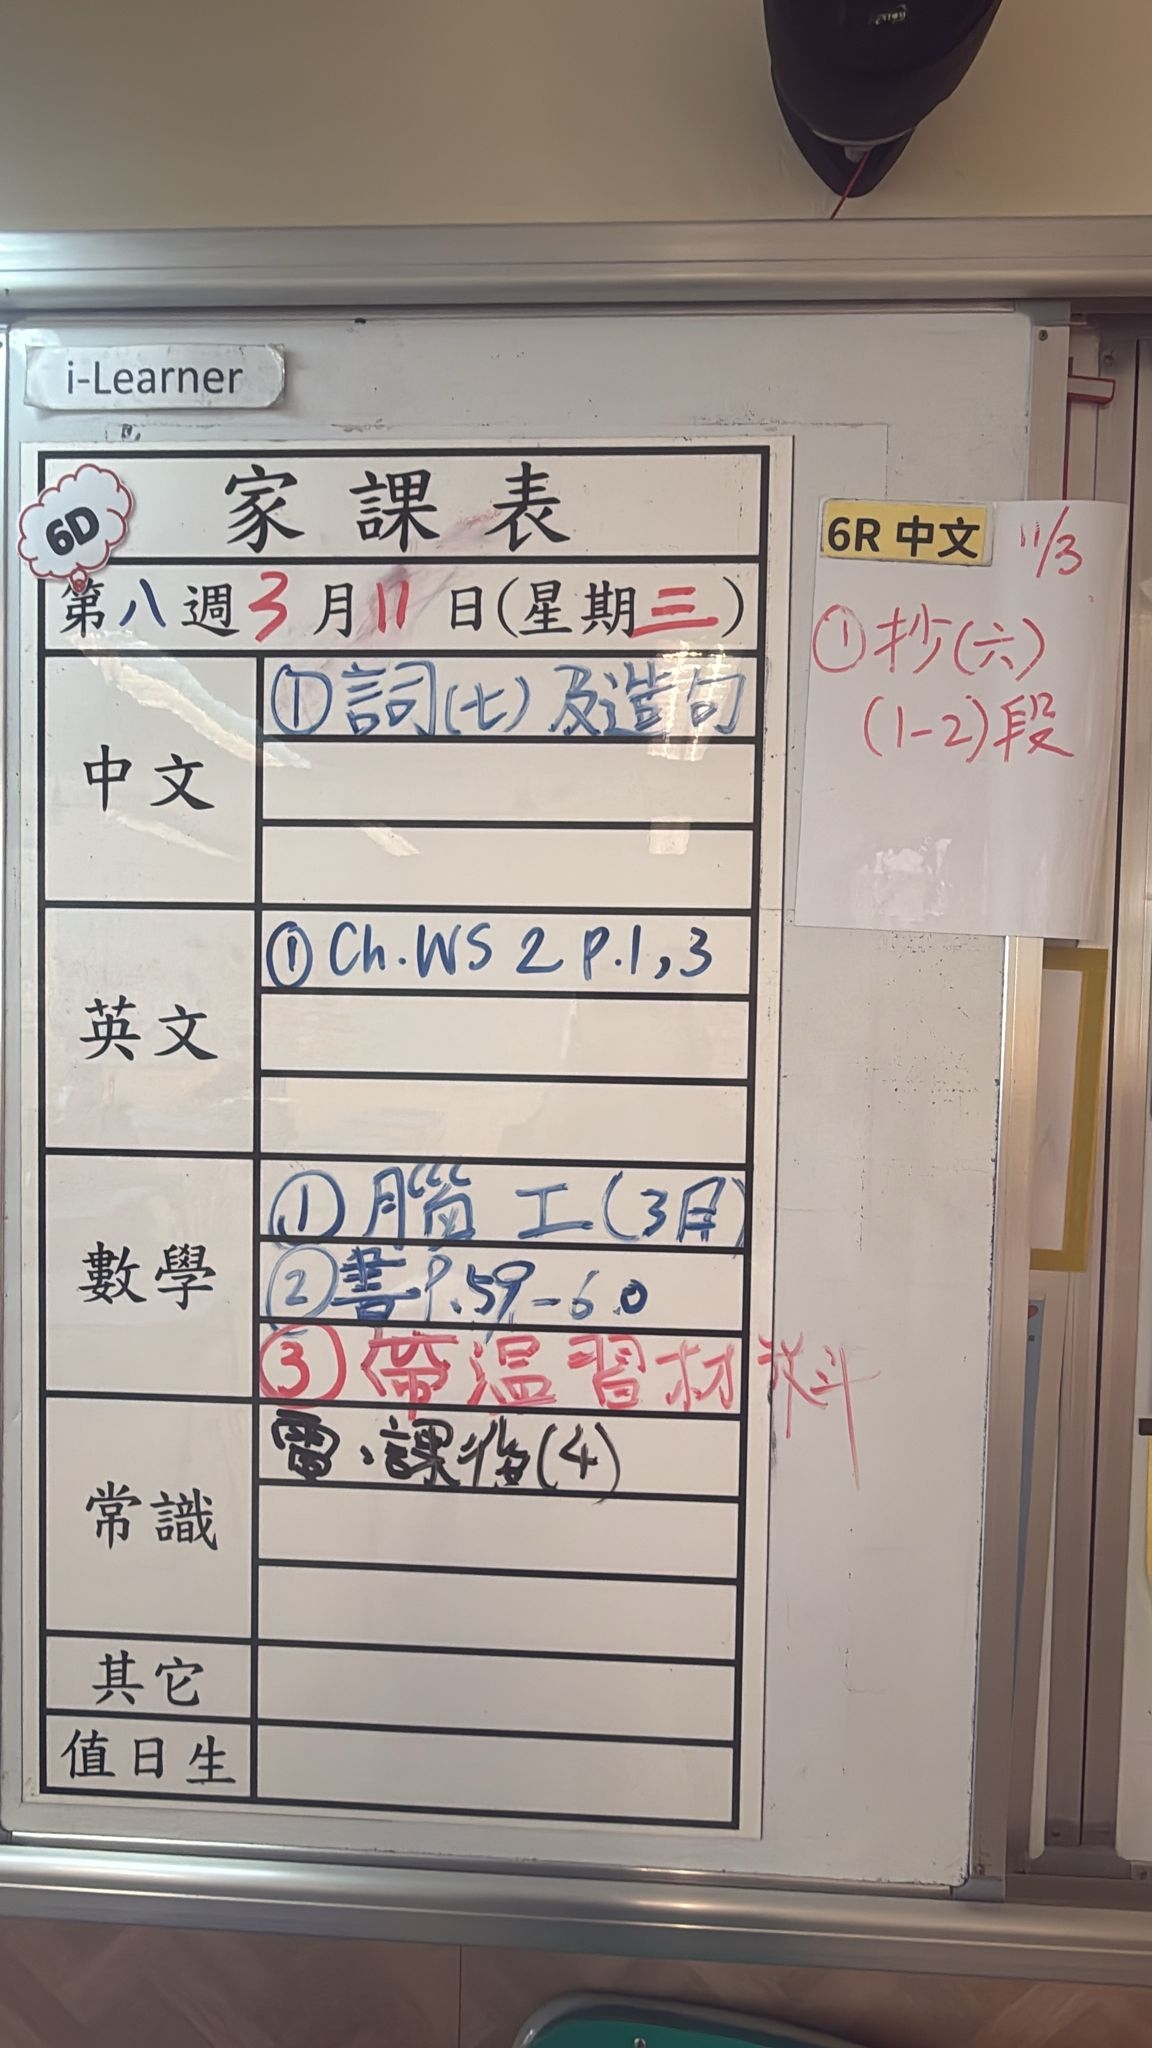 i-Learner
6D
家課表
第八週3月11日(星期三)
中文
①詞(七)及造句
英文
①Ch.WS 2 P.1,3
數學
①腦工(3月)
②書P.59-60
③帶溫習材料
常識
電.課後(4)
其它
值日生
6R 中文
11/3
①抄(六)
(1-2)段